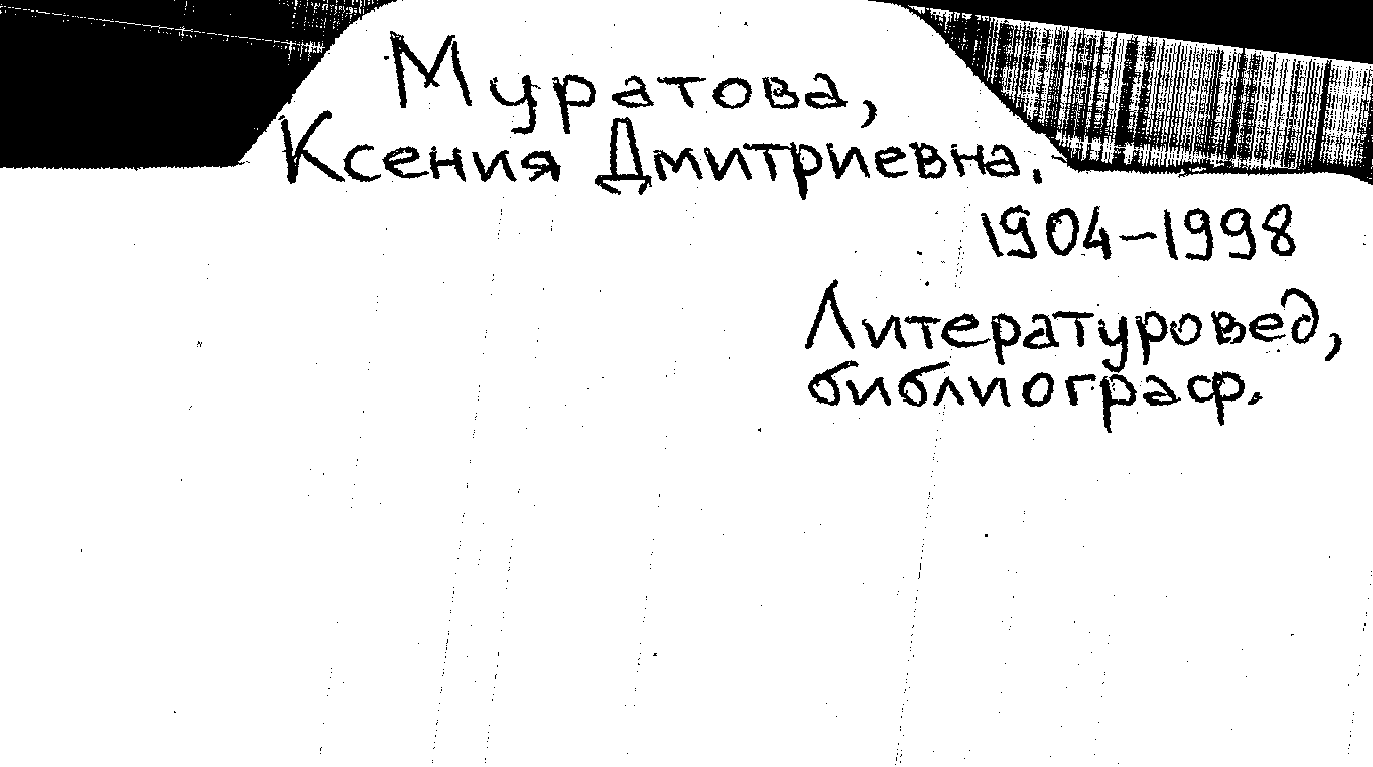 Муратова,
Ксения Дмитриевна.
1904-1998
Литературовед,
библиограф.